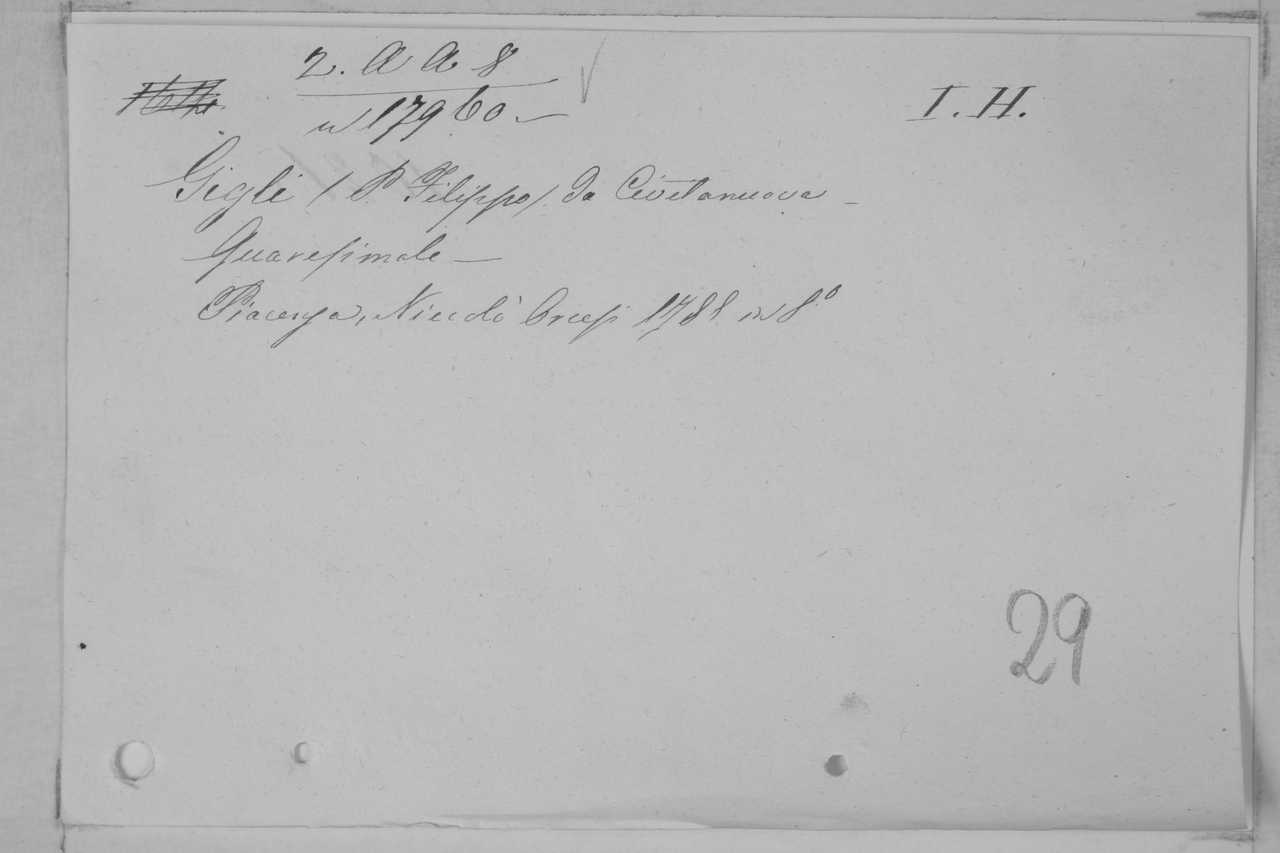 2. A A 8
I. H.
n 17960 -
Gigli (P. Filippo) da Civitanuova -
Quaresimale -
Piacenza, Niccolò Orcesi 1788 in 8º
29